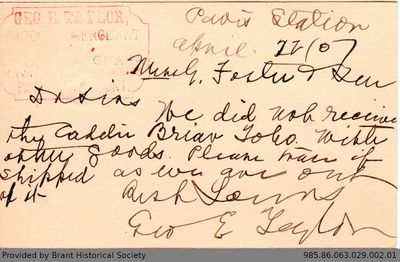 GEO. E. TAYLOR,
MERCHANT
Paris Station
April 22/07
Foster &
D Sirs We did not receive
the Caddie Briar Tobo. With
other goods. Please trace if
Shipped as we are out
of it
Geo E Taylor
Provided by Brant Historical Society
985.86.063.029.002.01